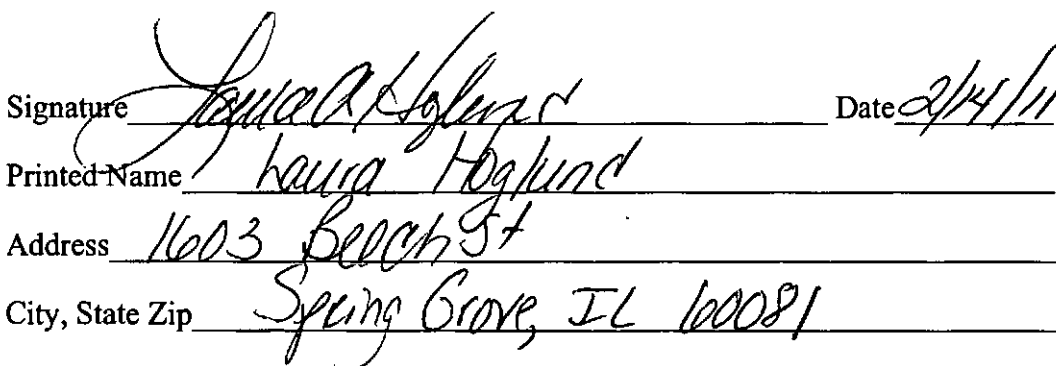 Signature Laura A Hoglund Date 2/14/11
Printed Name Laura Hoglund
Address 1603 Beach St
City, State Zip Spring Grove, IL 60081